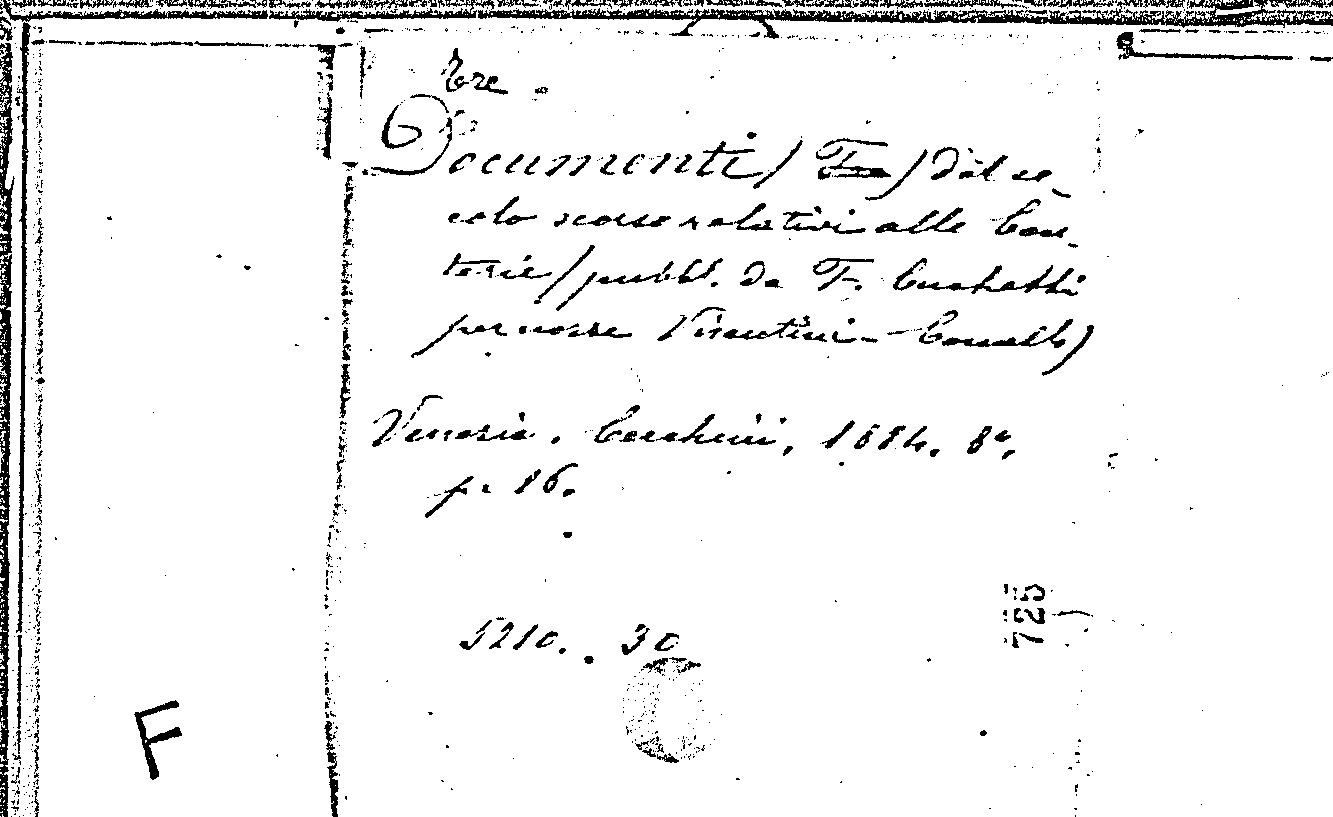 Tre
Documenti / Tre / del se-
colo scorso relativi alle Con-
terie / pubbl. da F. Cecchetti
per nozze Visentini-
Venezia, Cecchini, 1884, 8°,
p. 16.
5210. 30
725
F